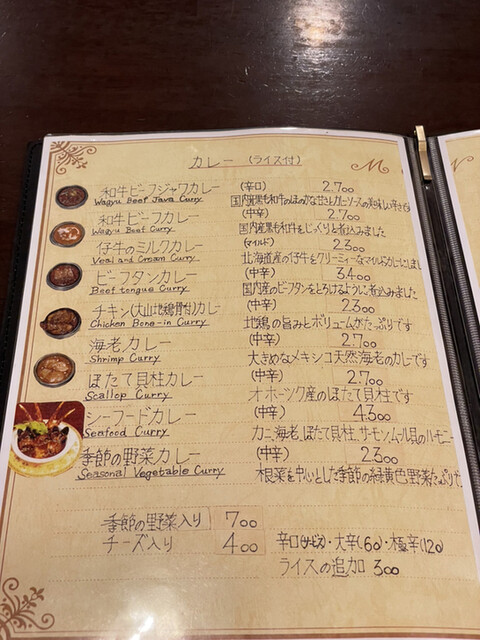 カレー (ライス付)
和牛ビーフジャワカレー (辛口) 2.700
Wagyu Beef Java Curry
和牛ビーフカレー (中辛) 2.700
Wagyu Beef Curry 国内産黒毛和牛をじっくりと煮込みました
仔牛のミルクカレー (マイルド) 2300
Veal and Cream Curry
ビーフタンカレー (中辛) 3.400
Beef tongue Curry 国内産のビーフタンをとろけるように煮込みました
チキン(大山地鶏骨付)カレー (中辛) 2300
Chicken Bone-in Curry 地鶏の旨みとボリュームがたっぷりです
海老カレー (中辛) 2.700
Shrimp Curry 大きめなメキシコ天然海老のカレーです
ほたて貝柱カレー (中辛) 2.700
Scallop Curry オホーツク産のほたて貝柱です
シーフードカレー (中辛) 4.300
Seafood Curry カニ、海老、ほたて貝柱、サーモン、ムール貝のハーモニー
季節の野菜カレー (中辛) 2300
Seasonal Vegetable Curry 根菜を中心とした季節の緑黄色野菜たっぷりで
季節の野菜入り 700
チーズ入り 400 辛口(サービス)・大辛(60)・極辛(120)
ライスの追加 300